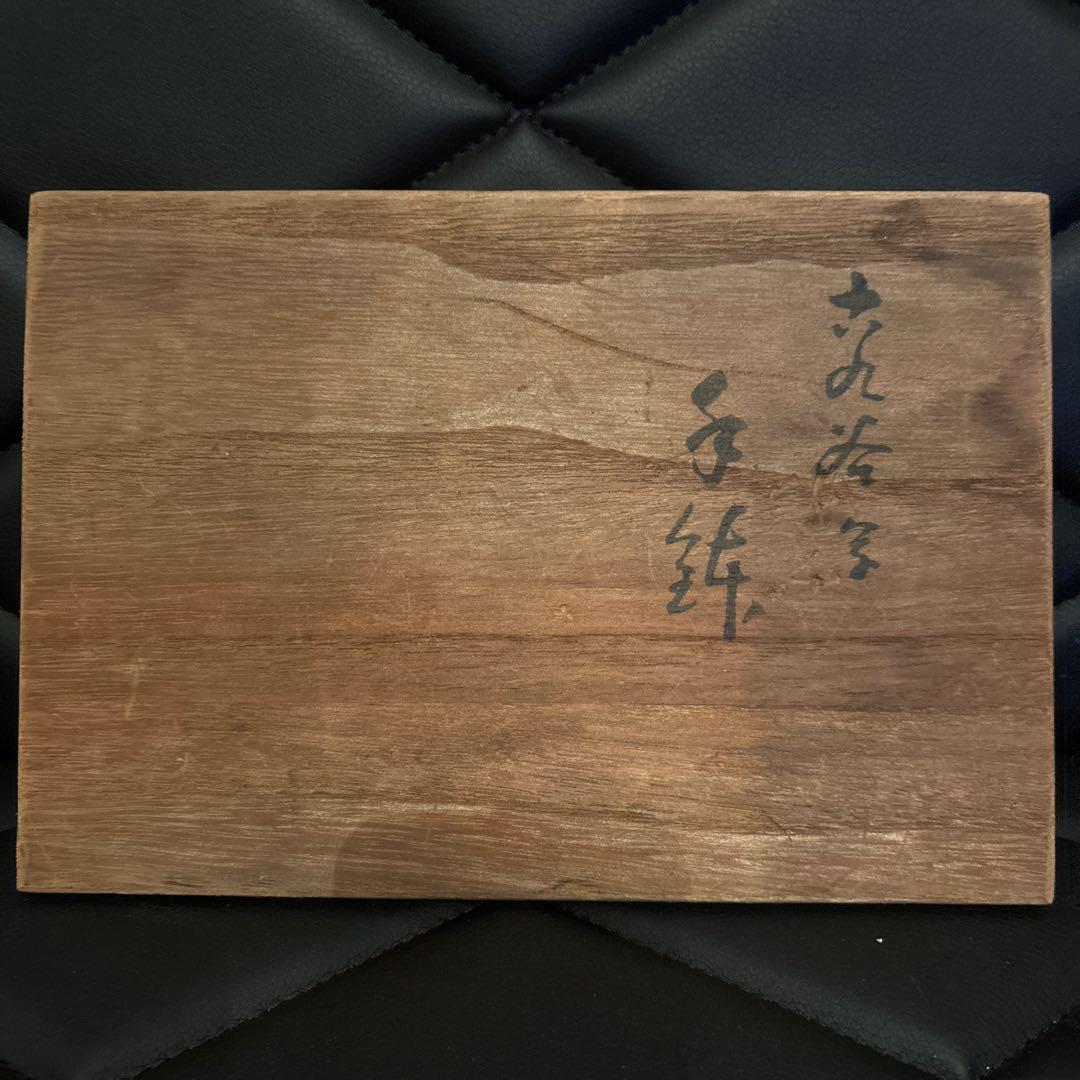 古九谷写
手鉢